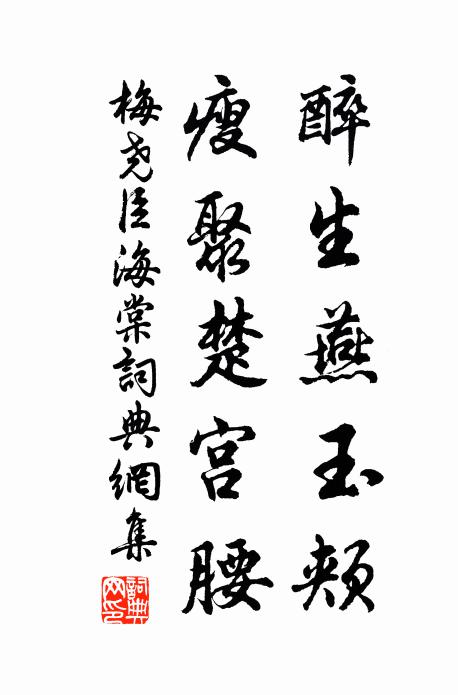 醉生燕玉頰
瘦聚楚宫腰
梅尧臣海棠詞典網集
詞典网印